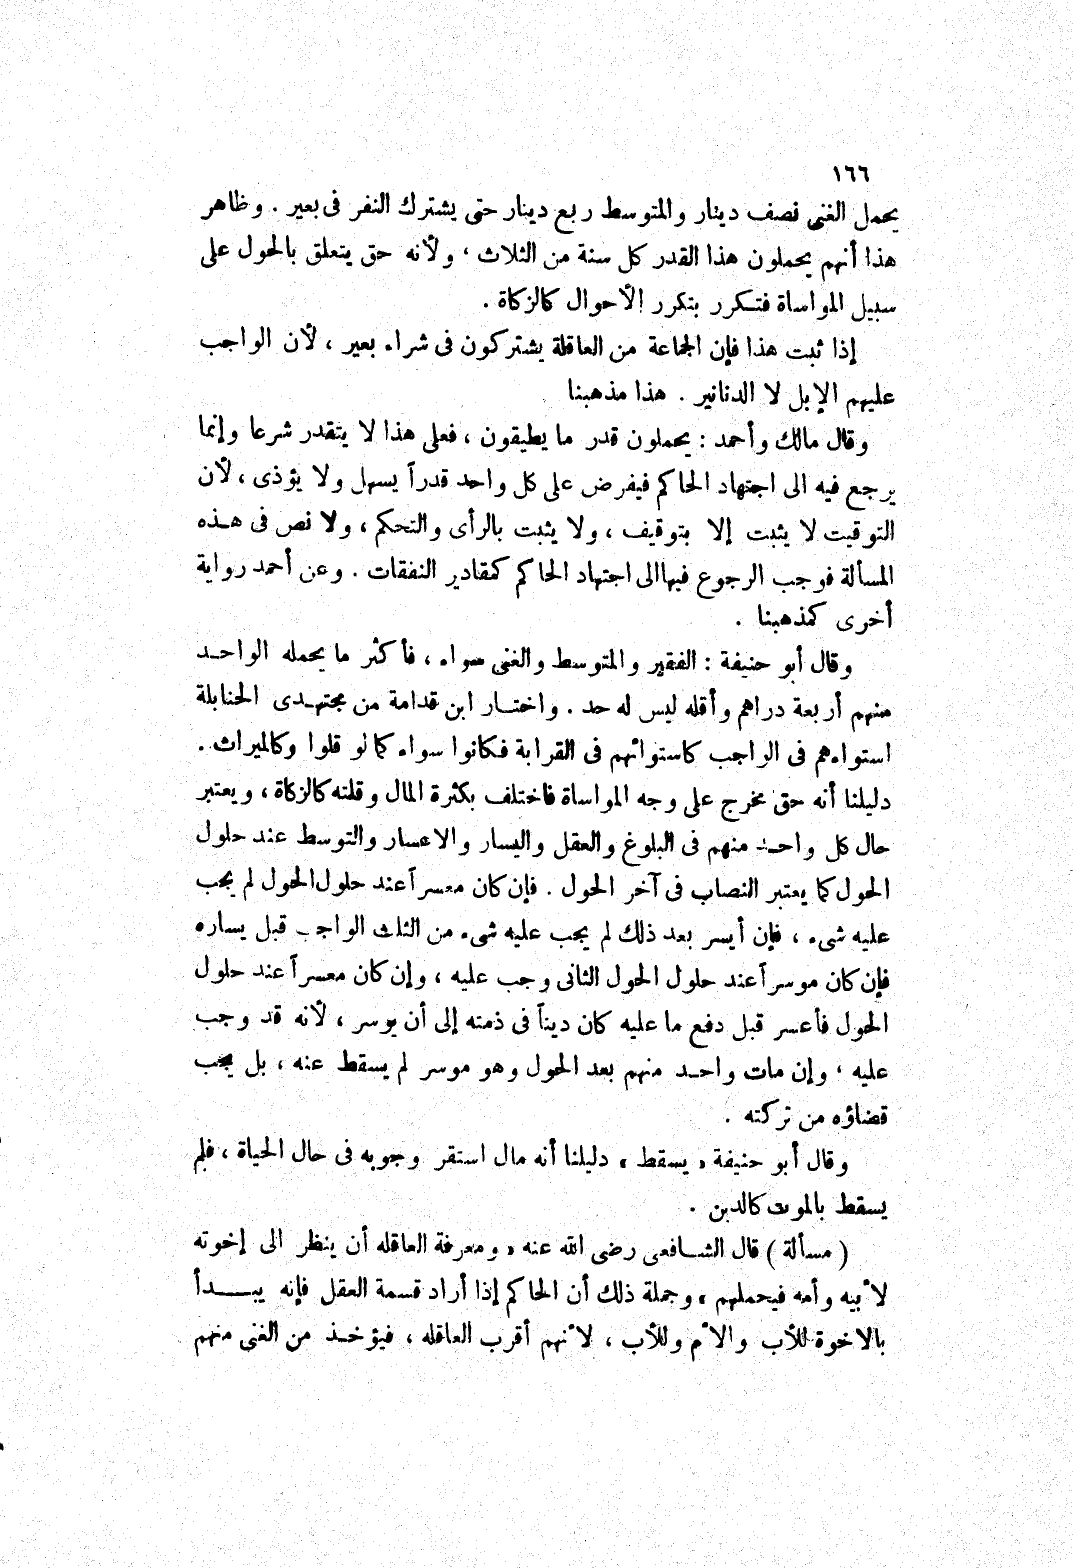 ١٦٦
يحمل الغنى نصف دينار والمتوسط ربع دينار حتى يشترك النفر فى بعير . وظاهر
هذا أنهم يحملون هذا القدر كل سنة من الثلاث ، ولأنه حق يتعلق بالحول على
سبيل المواساة فتـكرر بتكرر الأحوال كالزكاة .
إذا ثبت هذا فإن الجماعة من العاقلة يشتركون فى شراء بعير ، لأن الواجب
عليهم الإبل لا الدنانير . هذا مذهبنا
وقال مالك وأحمد : يحملون قدر ما يطيقون ، فعلى هذا لا يتقدر شرعا وإنما
يرجع فيه الى اجتهاد الحاكم فيفرض على كل واحد قدراً يسهل ولا يؤذى ، لأن
التوقيت لا يثبت إلا بتوقيف ، ولا يثبت بالرأى والتحكم ، ولا نص فى هـذه
المسألة فوجب الرجوع فيها الى اجتهاد الحاكم كمقادير النفقات . وعن أحمد رواية
أخرى كمذهبنا .
وقال أبو حنيفة : الفقير والمتوسط والغنى سواء ، فأكثر ما يحمله الواحـد
منهم أربعة دراهم وأقله ليس له حد . واختـار ابن قدامة من مجتهـدى الحنابلة
استواءهم فى الواجب كاستوائهم فى القرابة فـكانوا سواء كما لو قلوا وكالميراث .
دليلنا أنه حق مخرج على وجه المواساة فاختلف بكثرة المال وقلته كالزكاة ، ويعتبر
حال كل واحـد منهم فى البلوغ والعقل واليسار والاعسار والتوسط عند حلول
الحول كما يعتبر النصاب فى آخر الحول . فإن كان معسراً عند حلول الحول لم يجب
عليه شىء ، فإن أيسر بعد ذلك لم يجب عليه شىء من الثلث الواجب قبل يساره
فإن كان موسراً عند حلول الحول الثانى وجب عليه ، وإن كان معسراً عند حلول
الحول فأعسر قبل دفع ما عليه كان ديناً فى ذمته إلى أن يوسر ، لأنه قد وجب
عليه ، وإن مات واحـد منهم بعد الحول وهو موسر لم يسقط عنه ، بل يجب
قضاؤه من تركته .
وقال أبو حنيفة « يسقط » دليلنا أنه مال استقر وجوبه فى حال الحياة ، فلم
يسقط بالموت كالدين .
( مسألة ) قال الشـافعى رضى الله عنه « ومعرفة العاقله أن ينظر الى إخوته
لأبيه وأمه فيحملهم » وجملة ذلك أن الحاكم إذا أراد قسمة العقل فإنه يبـــدأ
بالاخوة للأب والأم وللأب ، لأنهم أقرب العاقله ، فيؤخـذ من الغنى منهم